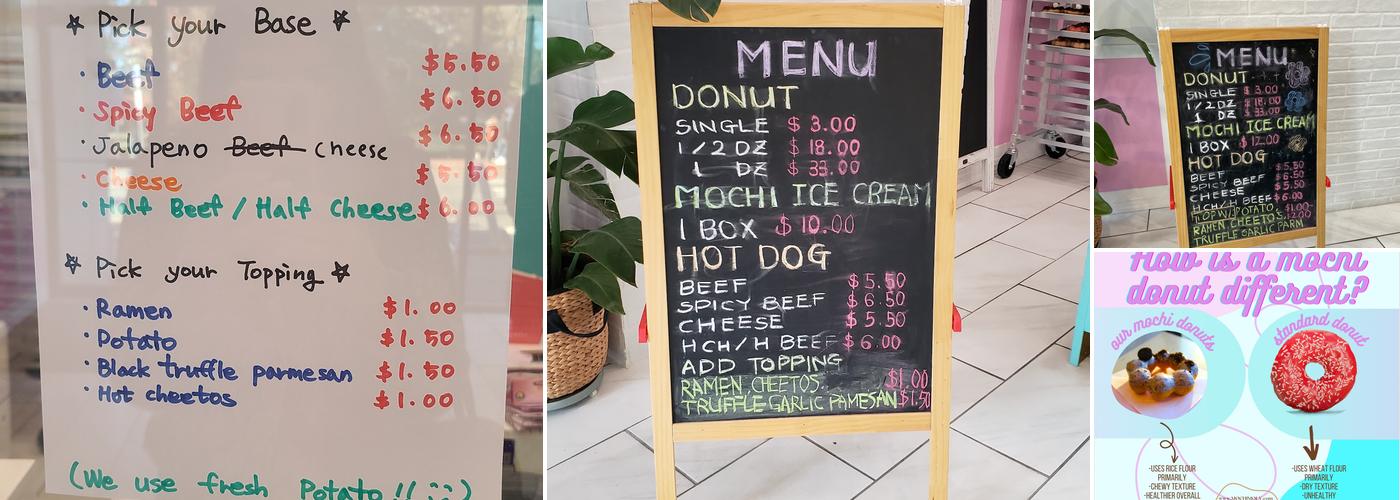 Pick your Base
Beef $5.50
Spicy Beef $6.50
Jalapeno Beef cheese $6.50
Cheese $5.50
Half Beef / Half Cheese $6.00
Pick your Topping
Ramen $1.00
Potato $1.50
Black truffle parmesan $1.50
Hot cheetos $1.00
(We use fresh Potato!! :))
MENU
DONUT
SINGLE $3.00
1/2 DZ $18.00
1 DZ $33.00
MOCHI ICE CREAM
1 BOX $10.00
HOT DOG
BEEF $5.50
SPICY BEEF $6.50
CHEESE $5.50
HCH/H BEEF $6.00
ADD TOPPING
RAMEN, CHEETOS $1.00
TRUFFLE GARLIC PAMESAN $1.50
MENU
DONUT
SINGLE $3.00
1/2 DZ $18.00
1 DZ $33.00
MOCHI ICE CREAM
1 BOX $12.00
HOT DOG
BEEF $5.50
SPICY BEEF $6.50
CHEESE $5.50
HCH/H BEEF $6.00
RAMEN CHEETOS
TRUFFLE GARLIC PARM
How is a mochi
donut different?
our mochi donuts
standard donut
-USES RICE FLOUR
PRIMARILY
-CHEWY TEXTURE
-HEALTHIER OVERALL
-USES WHEAT FLOUR
PRIMARILY
-DRY TEXTURE
-UNHEALTHY